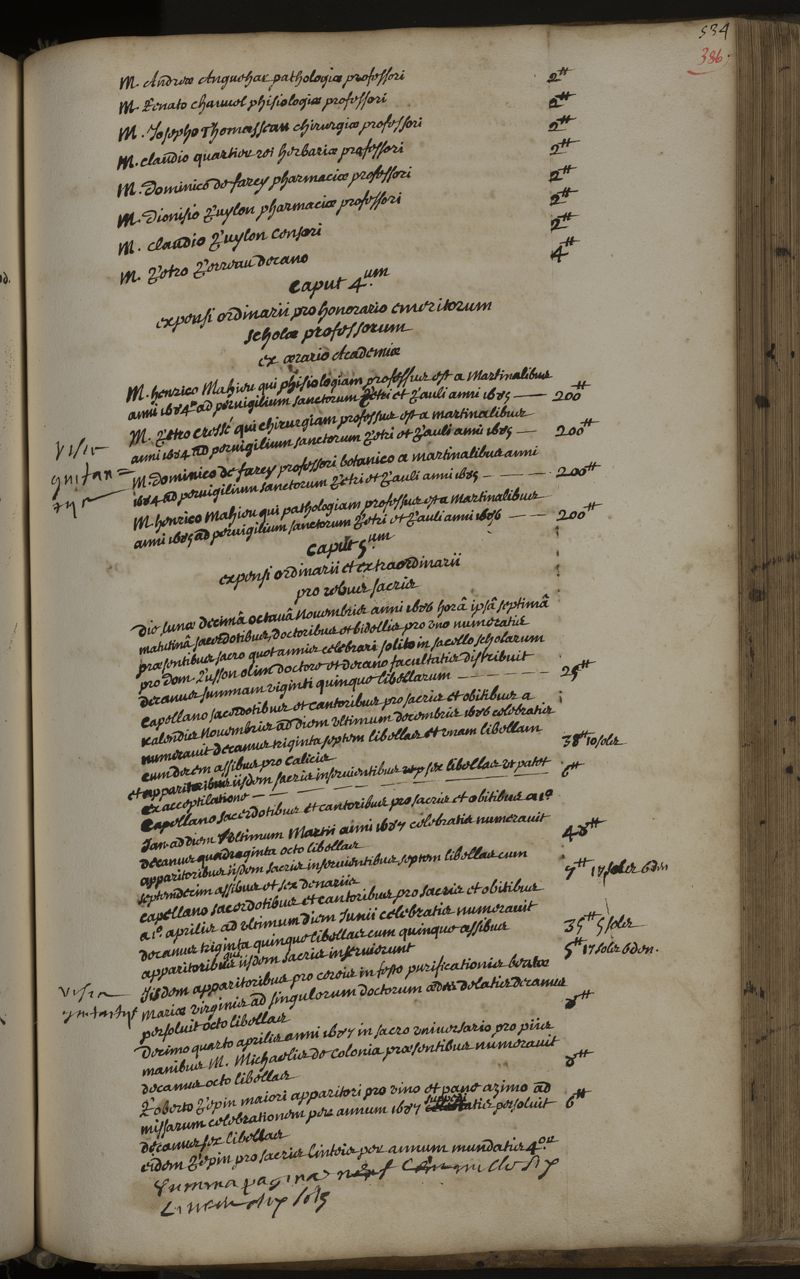 534
386.
M. Andreæ Enguehar pathologiæ professori 2tt
M. Renato Charuuol phisiologiæ professori 2tt
M. Josepho Thomasseau chirurgiæ professori 2tt
M. Claudio quartier rei herbariæ professori 2tt
M. Dominico de farcy pharmaciæ professori 2tt
M. Dionisio Puylon pharmaciæ professori 2tt
M. Claudio Puylon Censori 2tt
M. Petro Perreau decano 4tt
Caput 4.um
expensi ordinarii pro honorario emeritorum
scholæ professorum
ex ærario Academiæ
M. henrico Mahieu qui phisiologiam professus est a Martinalibus
anni 1684 ad peruigilium sanctorum Petri et Pauli anni 1685 — 200tt
M. Petro Cressé qui chirurgiam professus est a martinalibus
anni 1684 ad peruigilium sanctorum Petri et Pauli anni 1685 — 200tt
M. Dominico de farcy professori botanico a martinalibus anni
1684 ad peruigilium sanctorum Petri et Pauli anni 1685 — 200tt
M. henrico Mahieu qui pathologiam professus est a Martinalibus
anni 1685 ad peruigilium sanctorum Petri et Pauli anni 1686 — 200tt
Caput 5um
expensi ordinarii et extraordinarii
pro rebus sacris
Die lunæ decimâ octauâ Nouembris anni 1686 horâ ipsâ septimâ
matutinâ sacerdotibus, doctoribus et bidellis pro uno numeratis
præsentibus sacro quot annis celebrari solito in sacello scholarum
pro Dom. Lusson olim doctore et decano facultatis distribuit
decanus summam viginti quinque libellarum — 25tt
Capellano sacerdotibus et cantoribus pro sacris et obitibus a
Kalendis Nouembris ad diem ultimum decembris 1686 celebratis
numerauit decanus triginta septem libellas et unam libellam
cum decem assibus pro calicis 38tt 10 solis
et apparitoribus iisdem sacris inseruientibus sex libellas ut patet
ex acceptilatione — 6tt
Capellano sacerdotibus et cantoribus pro sacris et obitibus a 1o
Jan. ad diem Vltimum Martii anni 1687 celebratis numerauit
decanus quadraginta octo libellas 48tt
apparitoribus iisdem sacris inseruientibus, septem libellas cum
septemdecim assibus et sex denariis 7tt 17 solis 6 den
Capellano sacerdotibus et cantoribus pro sacris et obitibus
a 1o aprilis ad ultimum diem Junii celebratis numerauit
decanus triginta quinque libellas cum quinque assibus 35tt 5 solis
apparitoribus qui iisdem sacris inseruierunt 5tt 17 solis 6 den.
Iisdem apparitoribus pro cereis in festo purificationis beatæ
Mariæ virginis ad singulorum doctorum ædes delatis decanus
persoluit octo libellas 8tt
Decimo quarto aprilis anni 1687 in sacro vniuersario pro piis
manibus M. Michaelis de Colonia præsentibus numerauit
decanus octo libellas 8tt
Roberto Pepin maiori apparitori pro vino et pane azimo ad
missarum celebrationem per annum 1687 suppeditatis persoluit
decanus sex libellas 6tt
eidem Pepin pro sacris linteis per annum mundatis 4or
Summa paginæ neuf
Visa
quitan=
Visa